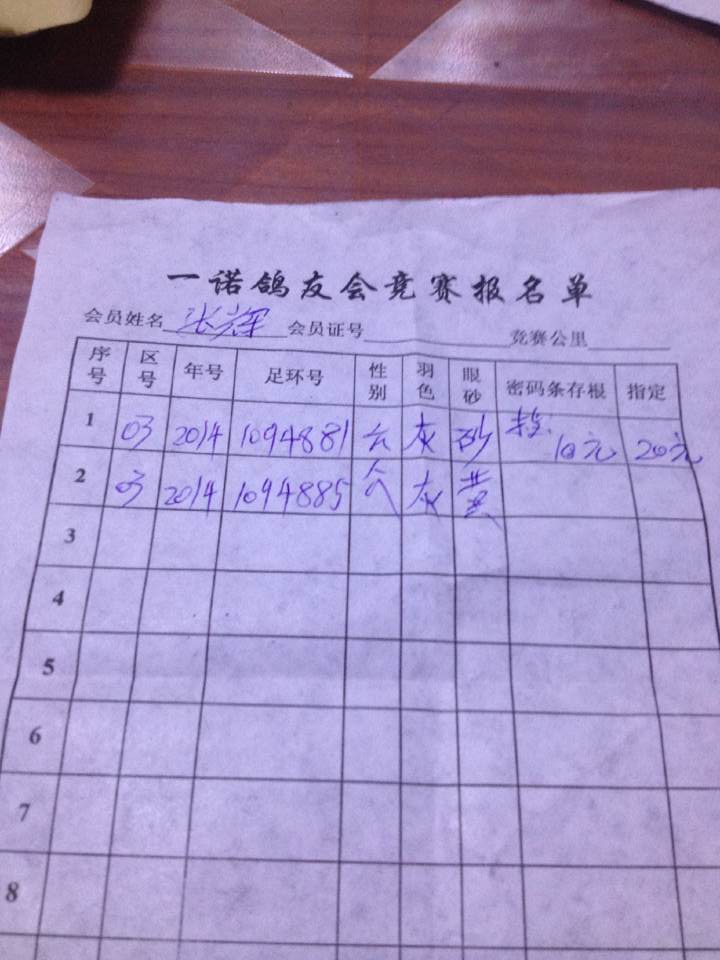 一诺鸽友会竞赛报名单
会员姓名 张辉 会员证号 竞赛公里
序号 区号 年号 足环号 性别 羽色 眼砂 密码条存根 指定
1 03 2014 1094881 灰 砂 10元 20元
2 03 2014 1094885 灰 黄
3
4
5
6
7
8